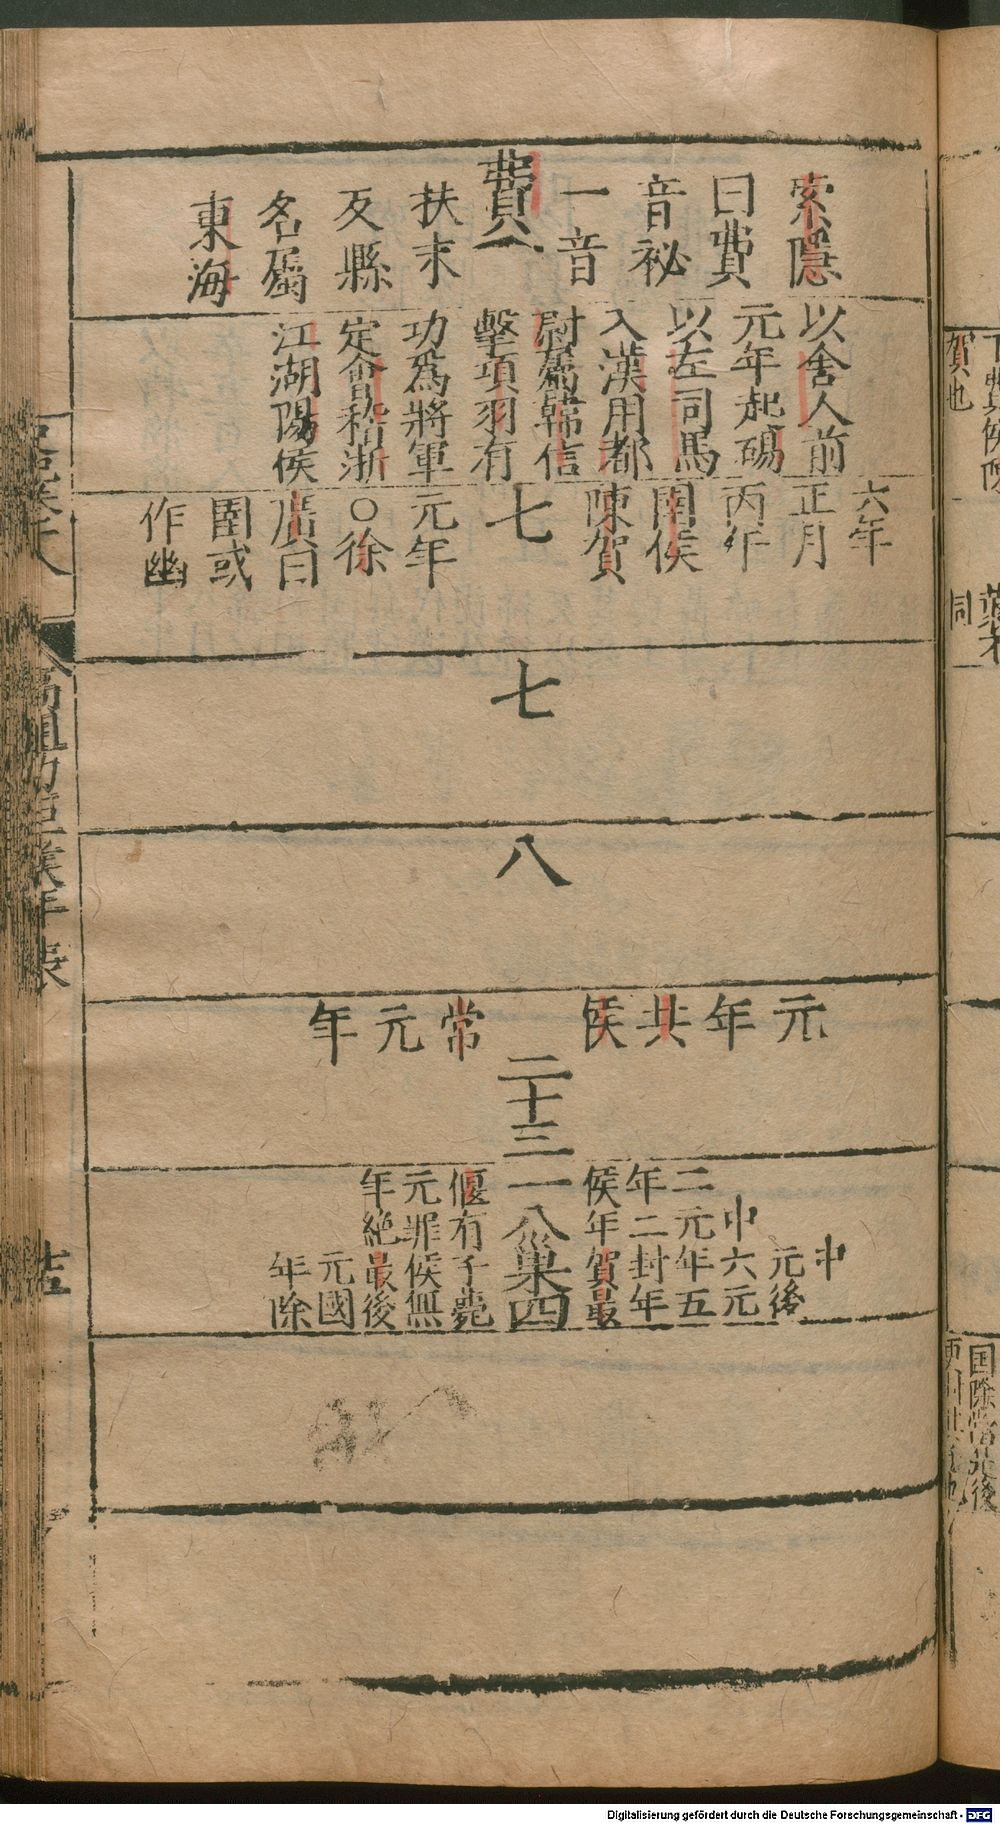 費
索隱
曰費
音祕
一音
扶末
反縣
名屬
東海
以舍人前
元年起碭
以左司馬
入漢用都
尉屬韓信
擊項羽有
功爲將軍
定會稽浙
江湖陽侯
七
六年
正月
丙午
圉侯
陳賀
元年
○徐
廣曰
圉或
作幽
七
八
元年共侯
常元年
二十三
一
八
巢
四
中
元後
中六元
二元年五
年二封年
侯年賀最
偃有子薨
元罪侯無
年絶最後
元國
年除
高祖功臣年表
Digitalisierung gefördert durch die Deutsche Forschungsgemeinschaft - DFG